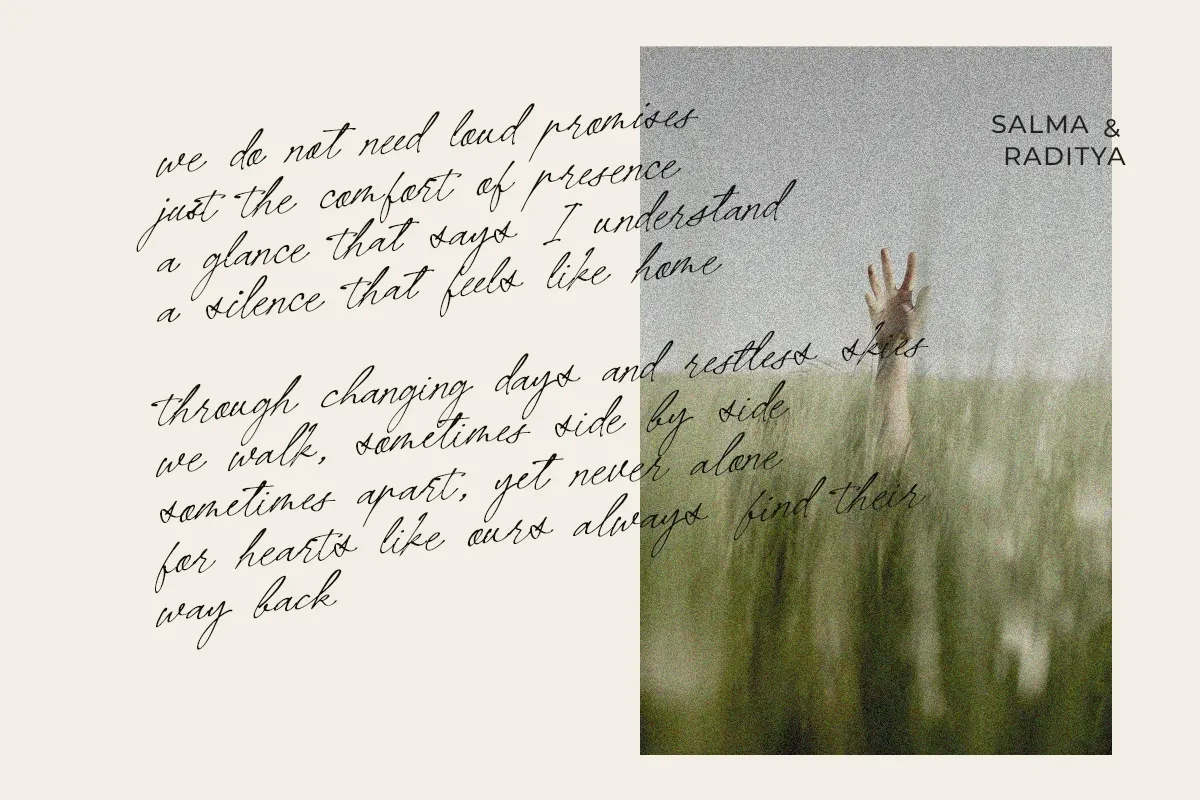 we do not need loud promises
just the comfort of presence
a glance that says I understand
a silence that feels like home
through changing days and restless skies
we walk, sometimes side by side
sometimes apart, yet never alone
for hearts like ours always find their
way back
SALMA &
RADITYA